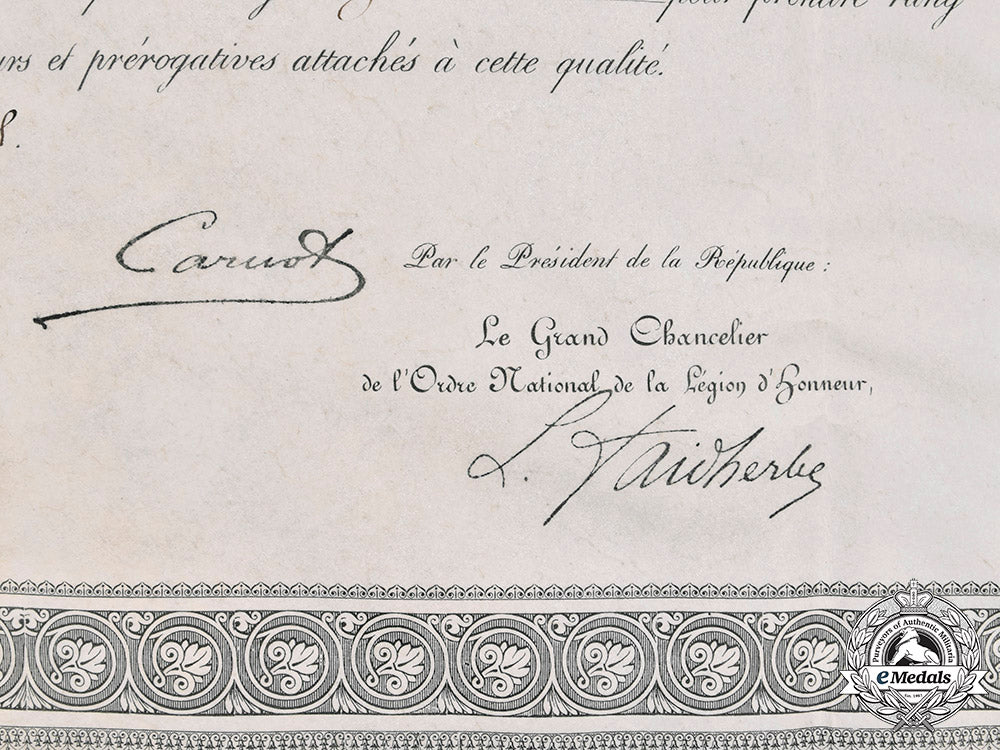 pour prendre rang
et prérogatives attachés à cette qualité.
Carnot
Par le Président de la République :
Le Grand Chancelier
de l'Ordre National de la Légion d'Honneur,
L. Faidherbe
Purveyors of Authentic Militaria
eMedals